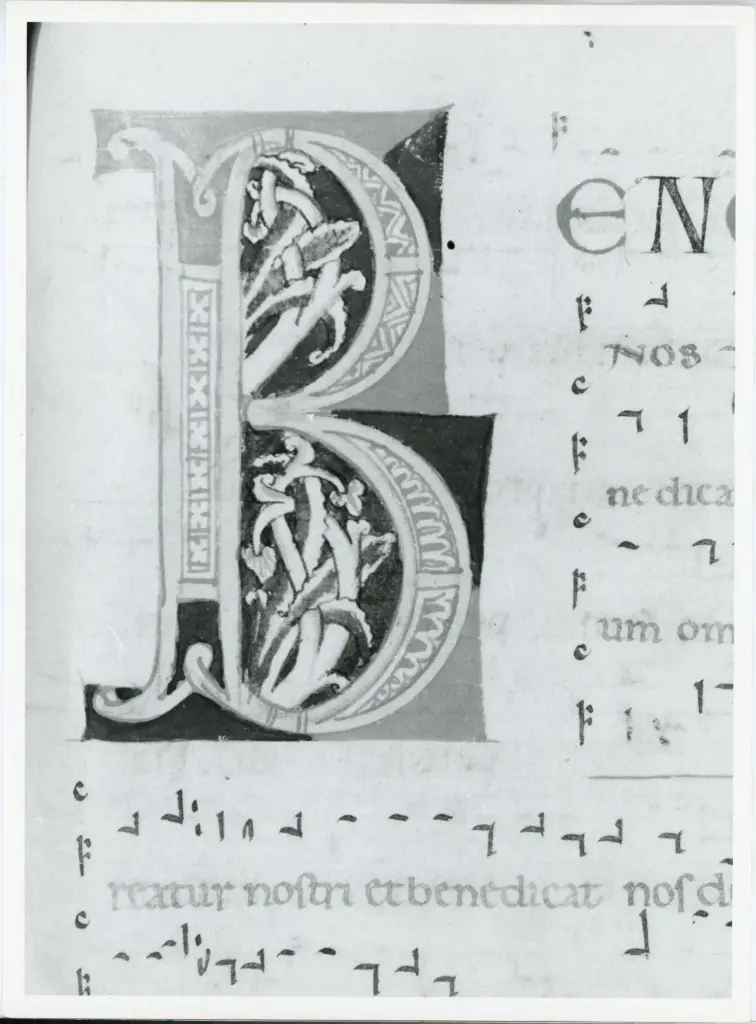 F
BEN
F
NOS
c
F
nedica
c
F
um om
c
F
c
F
reatur noſtri et benedicat noſ
c
F